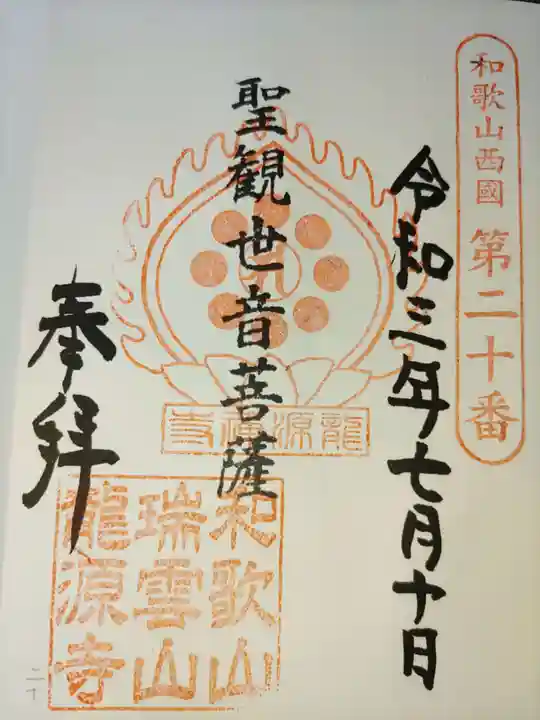 和歌山西國第二十番
令和三年七月十日
聖観世音菩薩
龍源禅寺
奉拜
和歌山
瑞雲山
龍源寺
二十